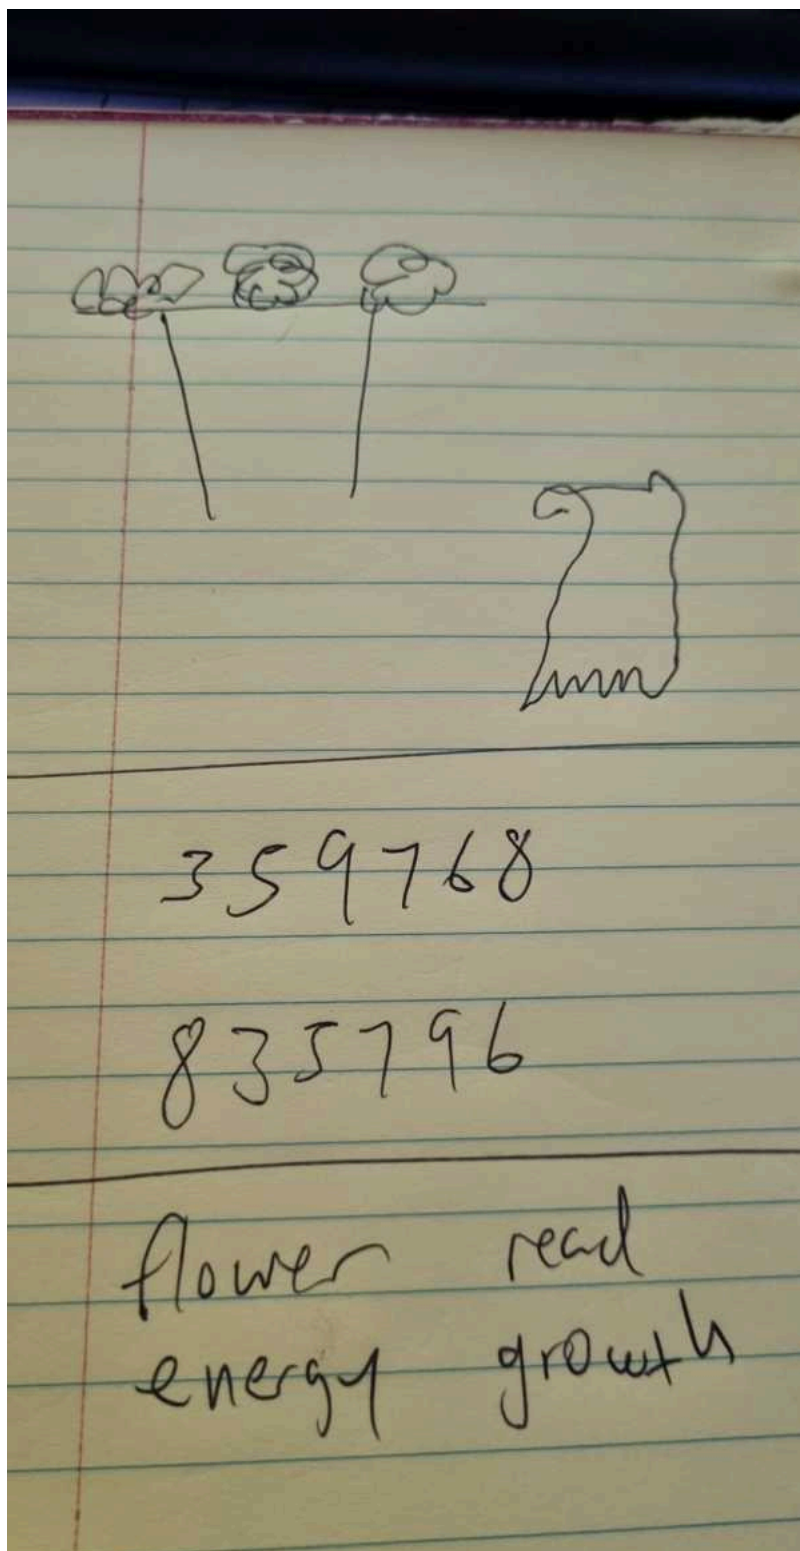 359768
835796
flower read
energy growth